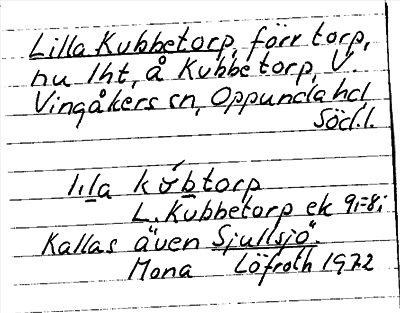 Lilla Kubbetorp, förr torp,
nu lht, å Kubbetorp, V.
Vingåkers sn, Oppunda hd,
Södl.
lila kubtorp
L. Kubbetorp ek 9i-8i
Kallas även Sjullsjö.
Mona Löfroth 1972